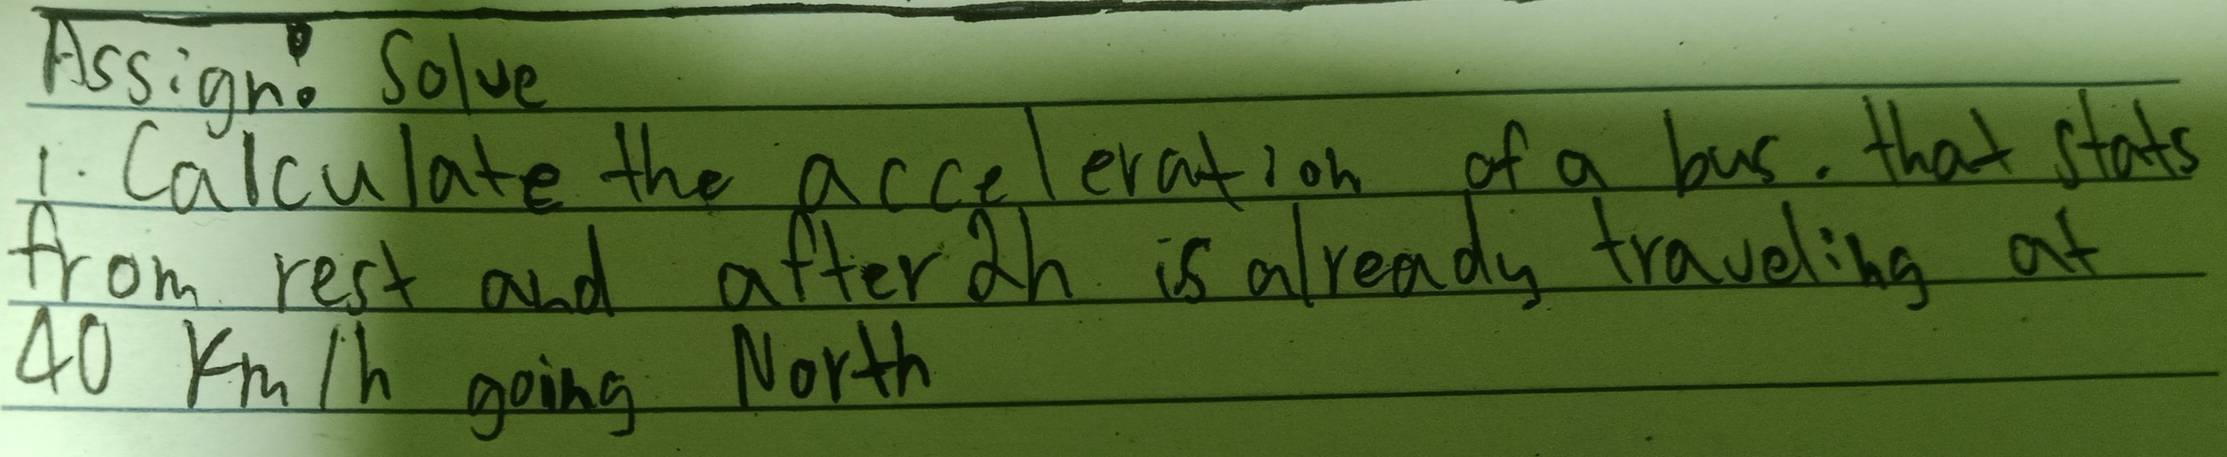 Assign: Solve
1. Calculate the acceleration of a bus. that stats
from rest and after 2h is already traveling at
40 Km/h going North